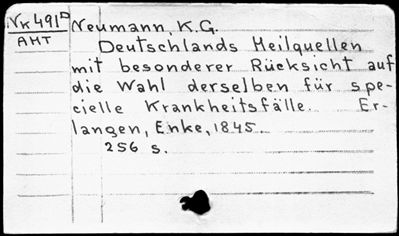 Nk491D
AHT
Neumann, K.G.
Deutschlands Heilquellen
mit besonderer Rücksicht auf
die Wahl derselben für spe-
cielle Krankheitsfälle. Er-
langen, Enke, 1845.
256 s.